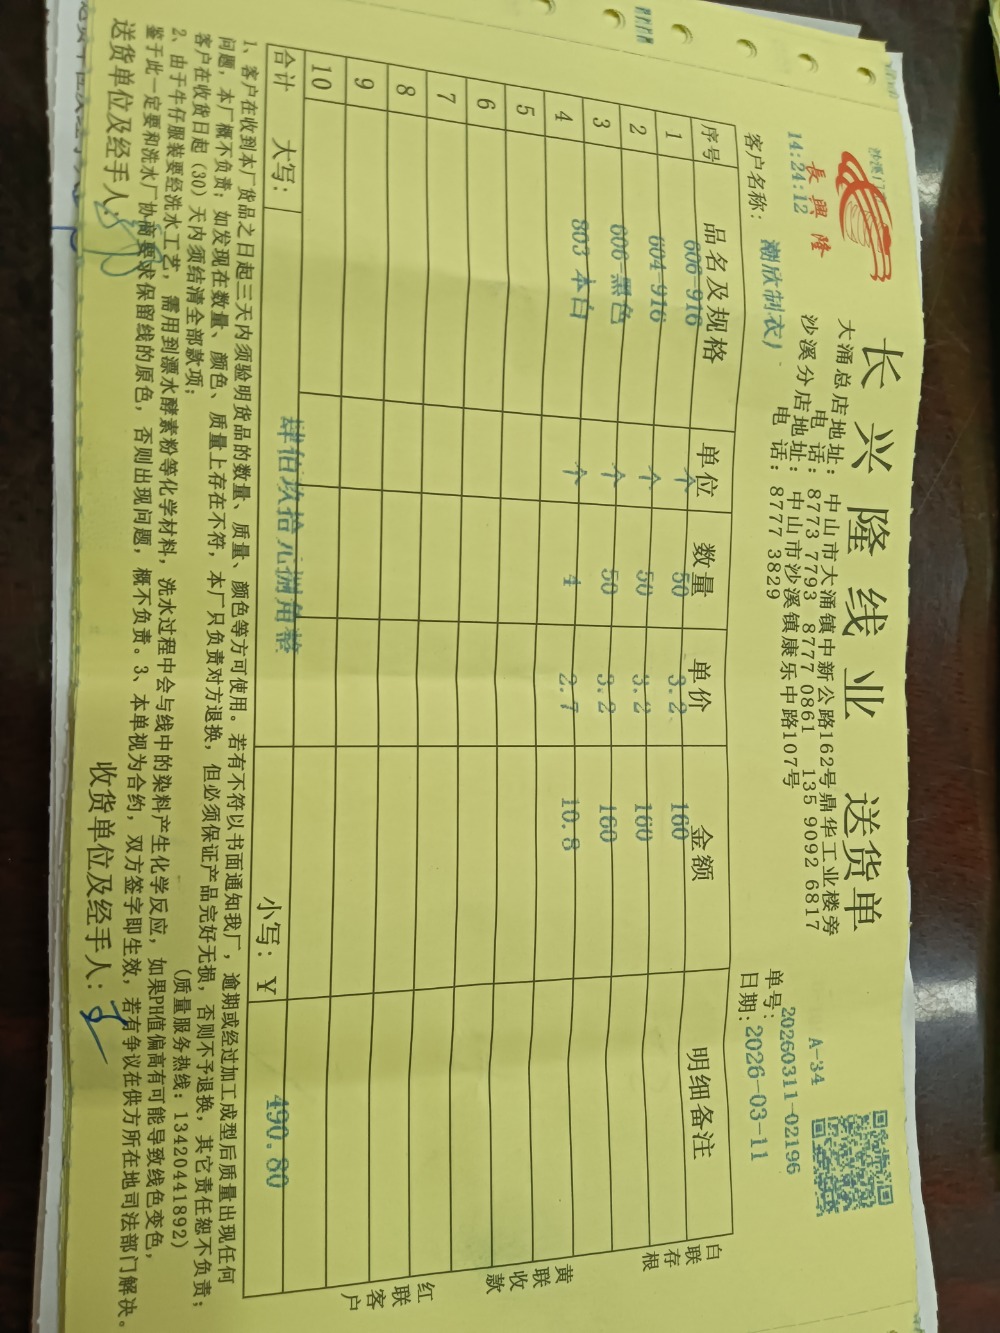 長興隆
14:24:12
长兴隆线业 送货单
大涌总店地址：中山市大涌镇中新公路162号鼎华工业楼旁
电 话：8773 7793 8777 0861 135 9092 6817
沙溪分店地址：中山市沙溪镇康乐中路107号
电 话：8777 3829
A-34
单号：20260311-02196
客户名称：潮欣制衣厂
日期：2026-03-11
序号 品名及规格 单位 数量 单价 金额 明细备注
1 606 916 个 50 3.2 160
2 604 916 个 50 3.2 160
3 606 黑色 个 50 3.2 160
4 803 本白 个 4 2.7 10.8
5
6
7
8
9
10
合计 大写： 肆佰玖拾元捌角整 小写：￥ 490.80
白联存根
黄联收款
红联客户
1、客户在收到本厂货品之日起三天内须验明货品的数量、质量、颜色等方可使用。若有不符以书面通知我厂，逾期或经过加工成型后质量出现任何
问题，本厂概不负责；如发现在数量、颜色、质量上存在不符，本厂只负责对方退换，但必须保证产品完好无损，否则不予退换，其它责任恕不负责；
客户在收货日起（30）天内须结清全部款项；
（质量服务热线：13420441892）
2、由于牛仔服装要经洗水工艺，需用到漂水酵素粉等化学材料，洗水过程中会与线中的染料产生化学反应，如果PH值偏高有可能导致线色变色，
鉴于此一定要和洗水厂协商要求保留线的原色，否则出现问题，概不负责。3、本单视为合约，双方签字即生效，若有争议在供方所在地司法部门解决。
送货单位及经手人：
收货单位及经手人：